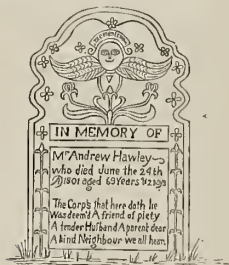 IN MEMORY OF
Mr Andrew Hawley
who died June the 24th
AD 1801 aged 69 Years
The Corp's that here doth lie
Was deem'd A friend of piety
A tender Huſband A parent dear
A kind Neighbour we all hear.